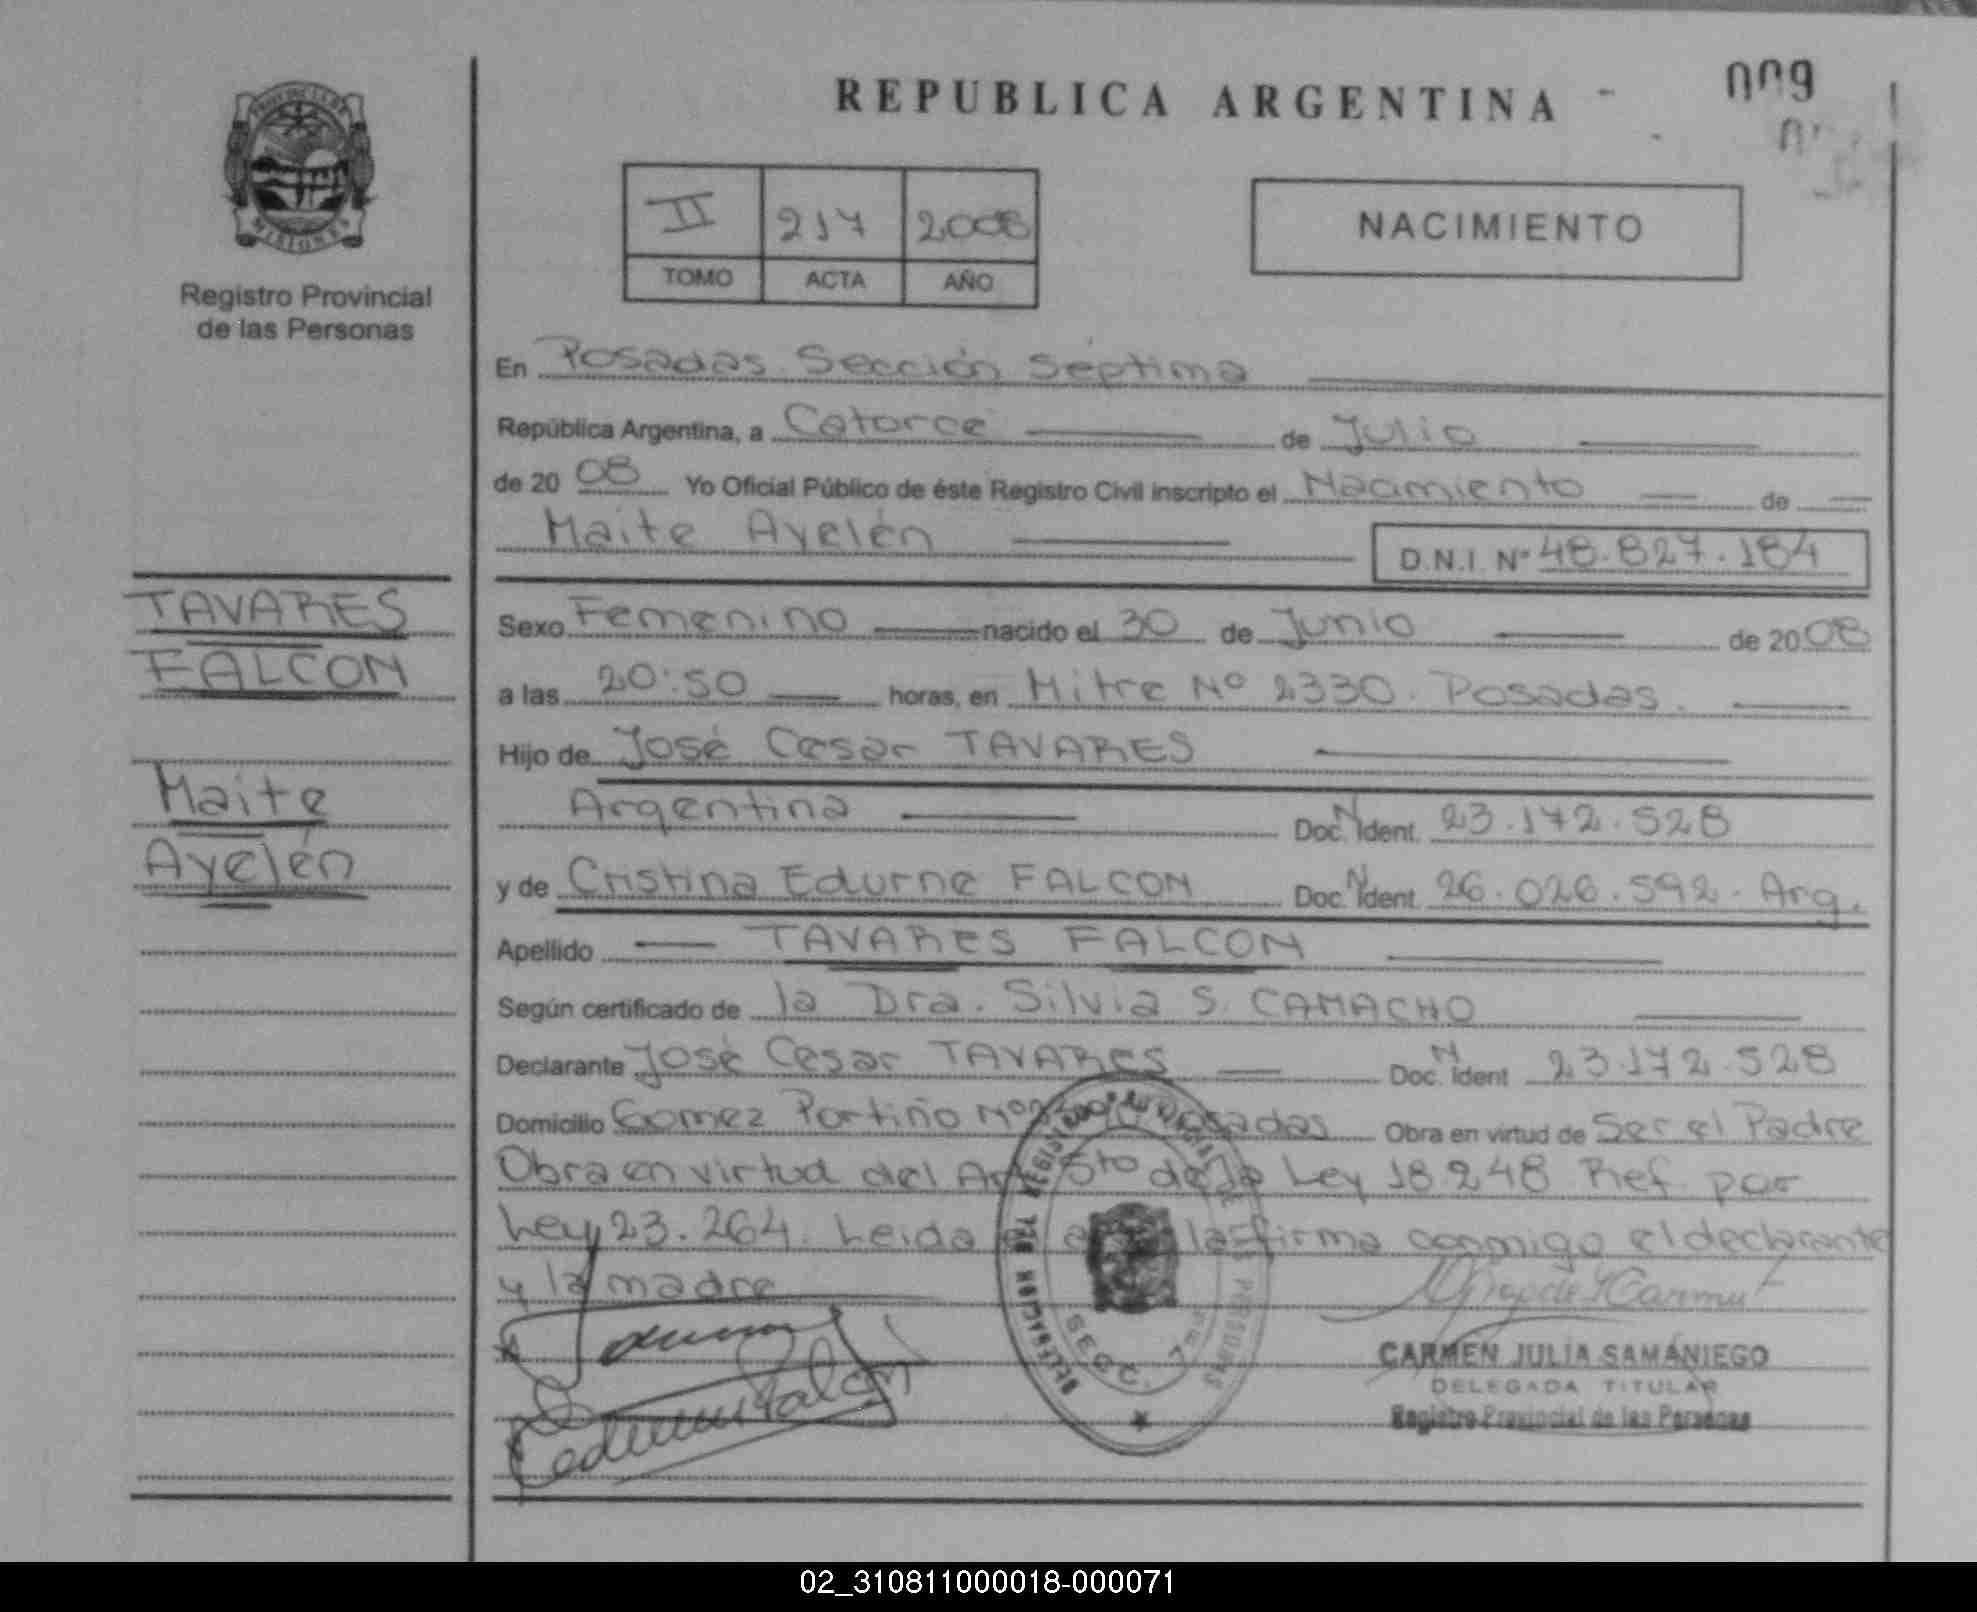 REPUBLICA ARGENTINA
009
PROVINCIA DE
MISIONES
Registro Provincial
de las Personas
II 217 2008
TOMO ACTA AÑO
NACIMIENTO
En Posadas Sección Séptima
República Argentina, a Catorce de Julio
de 20 08 Yo Oficial Público de éste Registro Civil inscripto el Nacimiento de
Maite Ayelén D.N.I. Nº 48.827.184
TAVARES
FALCON
Maite
Ayelén
Sexo Femenino nacido el 30 de Junio de 20 08
a las 20:50 horas, en Mitre Nº 2330. Posadas.
Hijo de José Cesar TAVARES
Argentina Doc. N Ident. 23.172.528
y de Cristina Edurne FALCON Doc. N Ident. 26.026.592. Arg.
Apellido TAVARES FALCON
Según certificado de la Dra. Silvia S. CAMACHO
Declarante José Cesar TAVARES Doc. N Ident 23.172.528
Domicilio Gomez Portiño Nº Posadas Obra en virtud de Ser el Padre
Obra en virtud del Art 5to de la Ley 18.248 Ref. por
Ley 23.264. Leida el la firma conmigo el declarante
y la madre
SECC. 7
CARMEN JULIA SAMANIEGO
DELEGADA TITULAR
Registro Provincial de las Personas
02_310811000018-000071